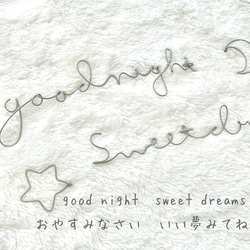 goodnight
Sweetdr
good night sweet dreams
おやすみなさい いい夢みてね